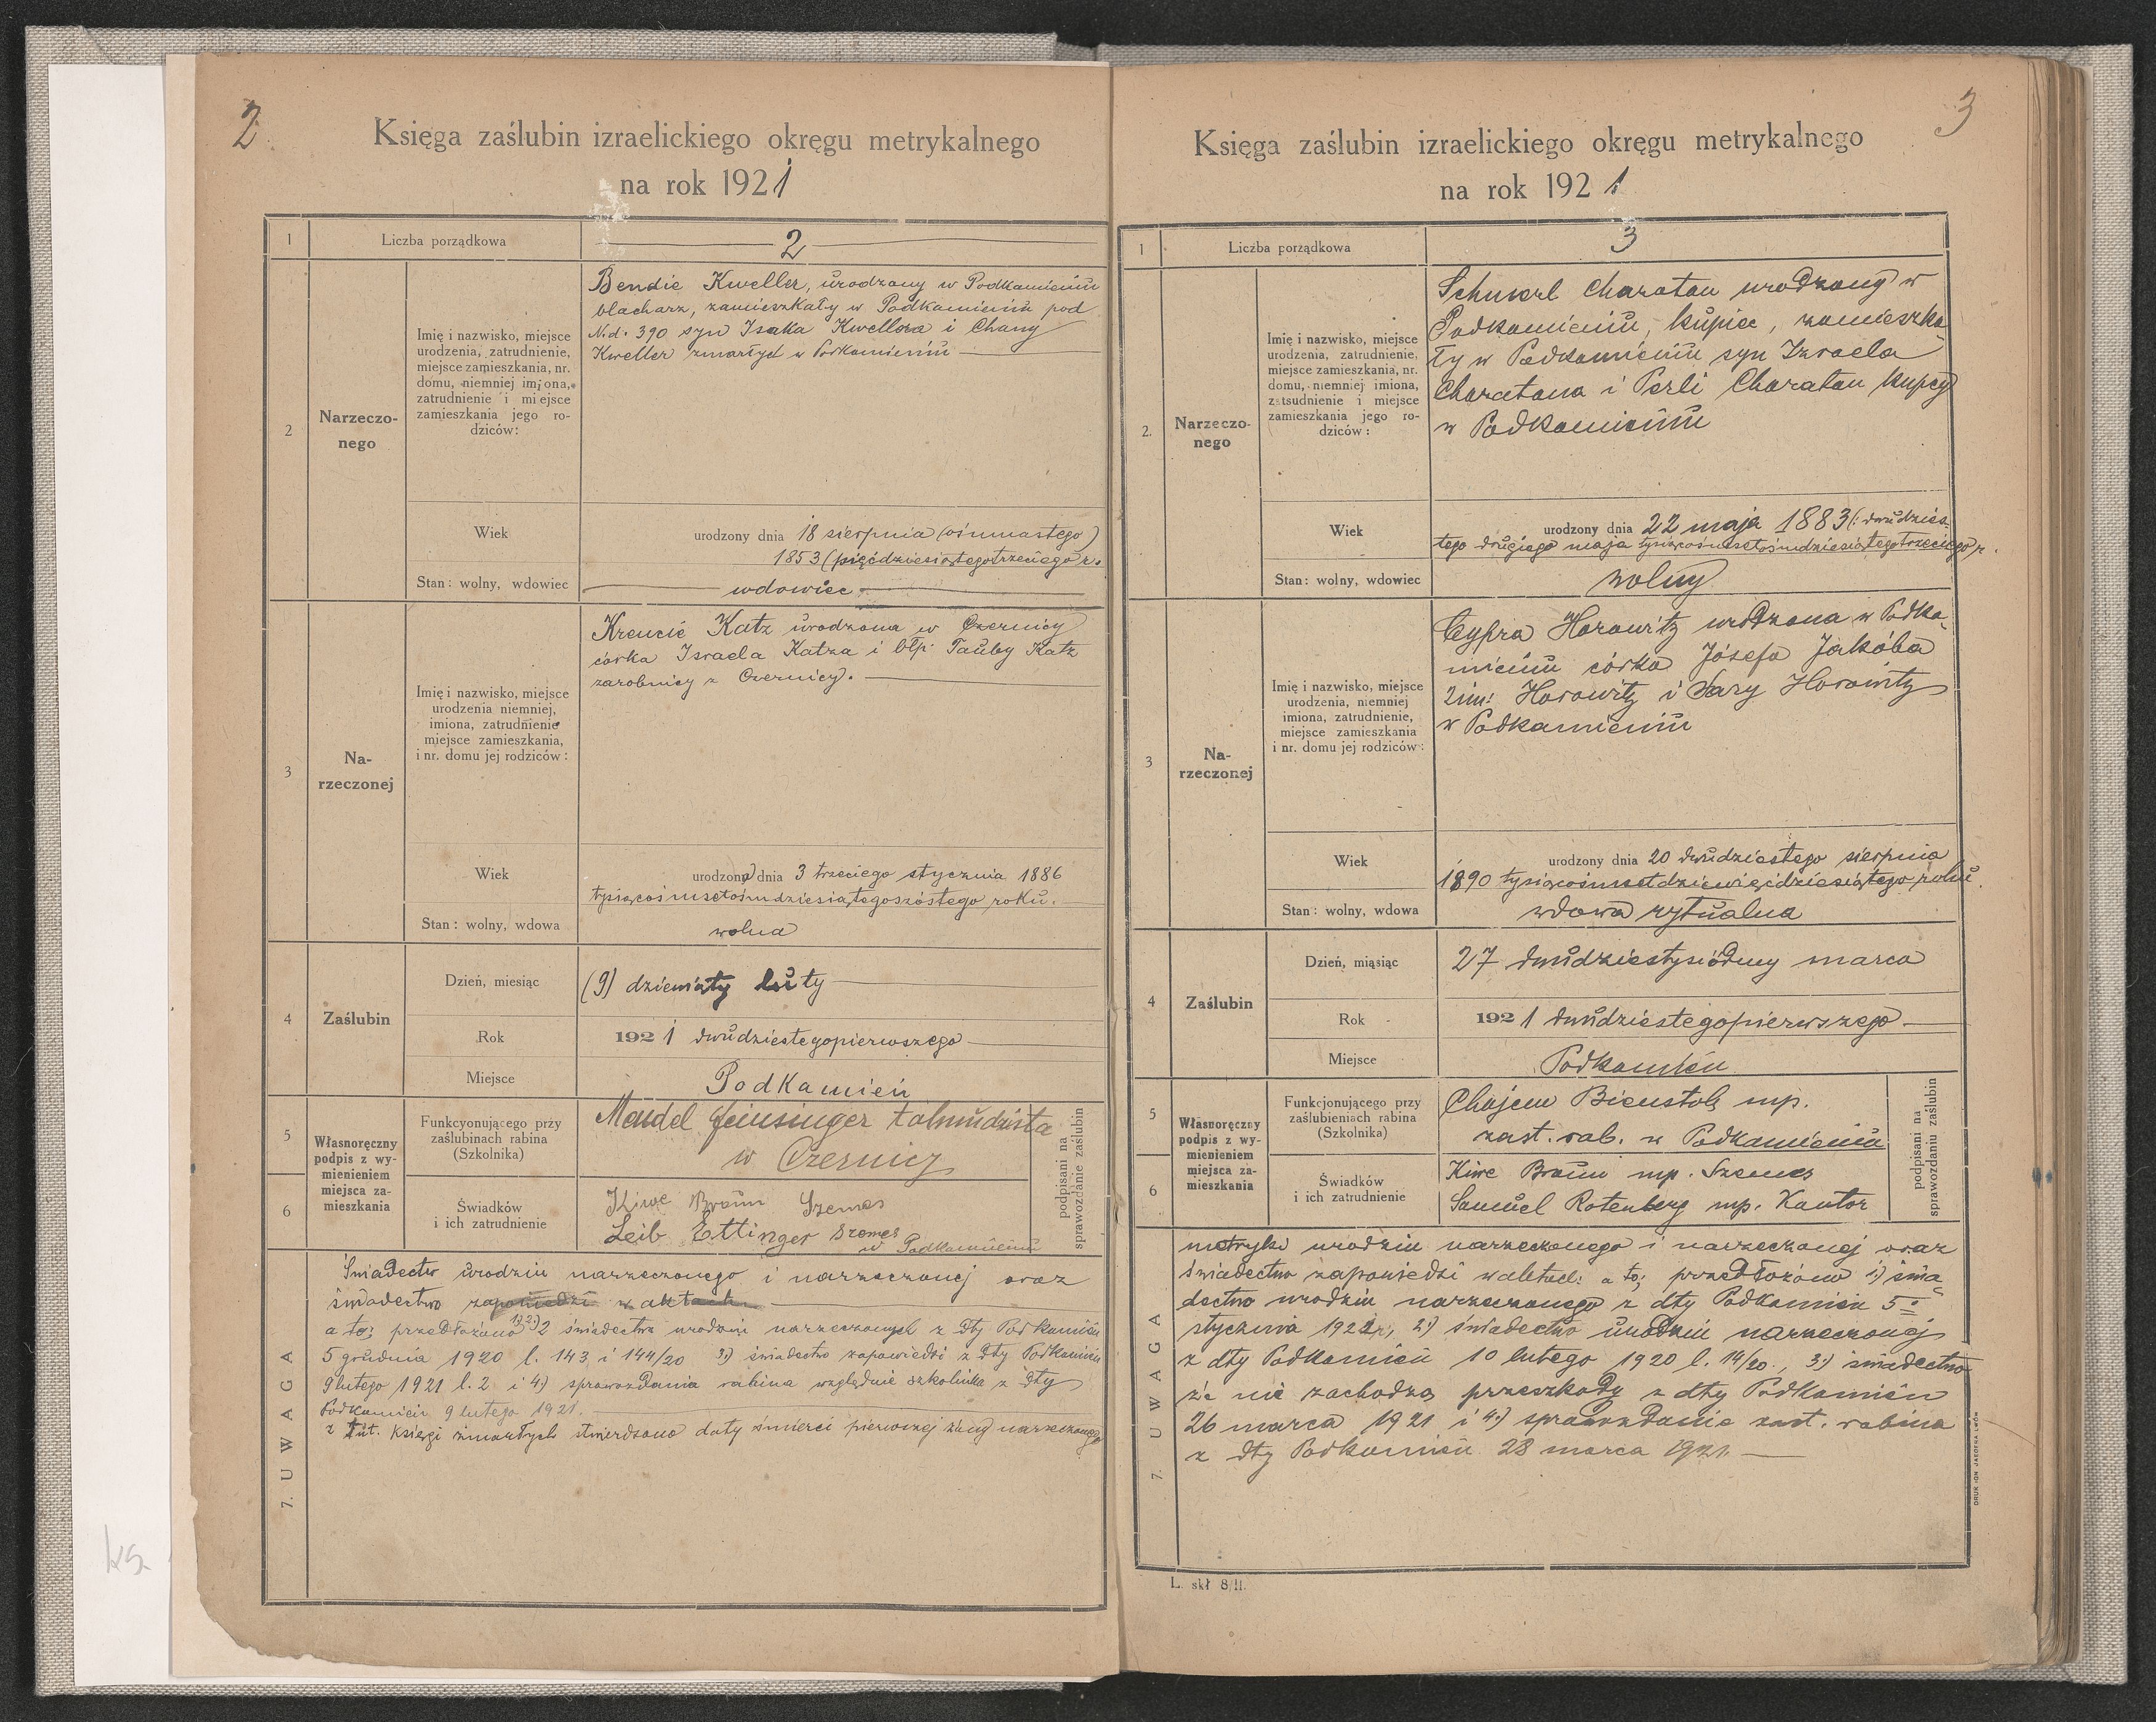 2
Księga zaślubin izraelickiego okręgu metrykalnego
na rok 1921
1
Liczba porządkowa
2
2
Narzeczo-
nego
Imię i nazwisko, miejsce
urodzenia, zatrudnienie,
miejsce zamieszkania, nr.
domu, niemniej imiona,
zatrudnienie i miejsce
zamieszkania jego ro-
dziców:
Bendie Kweller, urodzony w Podkamieniu
blacharz, zamieszkały w Podkamieniu pod
N.d. 390 syn Isaka Kwellera i Chany
Kweller zmarłych w Podkamieniu
Wiek
urodzony dnia 18 sierpnia (ośmnastego)
1853 (pięćdziesiątegotrzeciego r.
Stan: wolny, wdowiec
wdowiec
3
Na-
rzeczonej
Imię i nazwisko, miejsce
urodzenia niemniej,
imiona, zatrudnienie
miejsce zamieszkania,
i nr. domu jej rodziców:
Kreucie Katz urodzona w Czernicy
córka Israela Katza i błp. Tauby Katz
zarobnicy z Czernicy.
Wiek
urodzona dnia 3 trzeciego stycznia 1886
tysiącośmsetośmdziesiątegoszóstego roku.
Stan: wolny, wdowa
wolna
4
Zaślubin
Dzień, miesiąc
(9) dziewiąty luty
Rok
1921 dwudziestegopierwszego
Miejsce
Podkamień
5
6
Własnoręczny
podpis z wy-
mienieniem
miejsca za-
mieszkania
Funkcyonującego przy
zaślubinach rabina
(Szkolnika)
Mendel Feinsinger talmudista
w Czernicy
Świadków
i ich zatrudnienie
Kiwe Braun Szemes
Leib Ettinger Szemes
w Podkamieniu
podpisani na
sprawozdanie zaślubin
7. UWAGA
Świadectwo urodzin narzeczonego i narzeczonej oraz
świadectwo zapowiedzi w aktach
a to; przedłożono 1) 2) 2 świadectwa urodzin narzeczonych z dty Podkamień
5 grudnia 1920 l. 143 i 144/20 3) świadectwo zapowiedzi z dty Podkamień
9 lutego 1921 l. 2 i 4) sprawozdania rabina względnie szkolnika z dty
Podkamień 9 lutego 1921.
z tut. księgi zmarłych stwierdzono daty śmierci pierwszej żony narzeczonego
3
Księga zaślubin izraelickiego okręgu metrykalnego
na rok 1921
1
Liczba porządkowa
3
2.
Narzeczo-
nego
Imię i nazwisko, miejsce
urodzenia, zatrudnienie,
miejsce zamieszkania, nr.
domu, niemniej imiona,
zatsudnienie i miejsce
zamieszkania jego ro-
dziców:
Schmerl Charatan urodzony w
Podkamieniu, kupiec, zamieszka-
ły w Podkamieniu syn Izraela
Charatana i Perli Charatan kupcy
w Podkamieniu
Wiek
urodzony dnia 22 maja 1883 (: dwudzies-
tego drugiego maja tysiącośmsetośmdziesiątegotrzeciego r.
Stan: wolny, wdowiec
wolny
3
Na-
rzeczonej
Imię i nazwisko, miejsce
urodzenia, niemniej
imiona, zatrudnienie,
miejsce zamieszkania
i nr. domu jej rodziców:
Cypra Horowitz urodzona w Podka-
mieniu córka Józefa Jakóba
2im: Horowitz i Sary Horowitz
w Podkamieniu
Wiek
urodzony dnia 20 dwudziestego sierpnia
1890 tysiącośmsetdziewięćdziesiątego roku.
Stan: wolny, wdowa
wdowa rytualna
4
Zaślubin
Dzień, miąsiąc
27 dwudziestysiódmy marca
Rok
1921 dwudziestegopierwszego
Miejsce
Podkamień
5
6
Własnoręczny
podpis z wy-
mienieniem
miejsca za-
mieszkania
Funkcjonującego przy
zaślubieniach rabina
(Szkolnika)
Chajem Bienstok mp.
zast. rab. w Podkamieniu
Świadków
i ich zatrudnienie
Kiwe Braun mp. Szemes
Samuel Rotenberg mp. Kantor
podpisani na
sprawozdaniu zaślubin
7. UWAGA
metryki urodzin narzeczonego i narzeczonej oraz
świadectwo zapowiedzi w aktach: a to; przedłożono 1) świa-
dectwo urodzin narzeczonego z dty Podkamień 5
stycznia 1921 r, 2) świadectwo urodzin narzeczonej
z dty Podkamień 10 lutego 1920 l. 14/20., 3) świadectwo
że nie zachodzą przeszkody z dty Podkamień
26 marca 1921 i 4) sprawozdanie zast. rabina
z dty Podkamień 28 marca 1921.
L. skł 8/II.